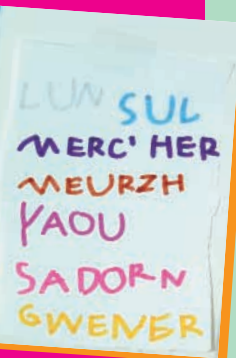 LUN SUL
MERC' HER
MEURZH
YAOU
SADORN
GWENER